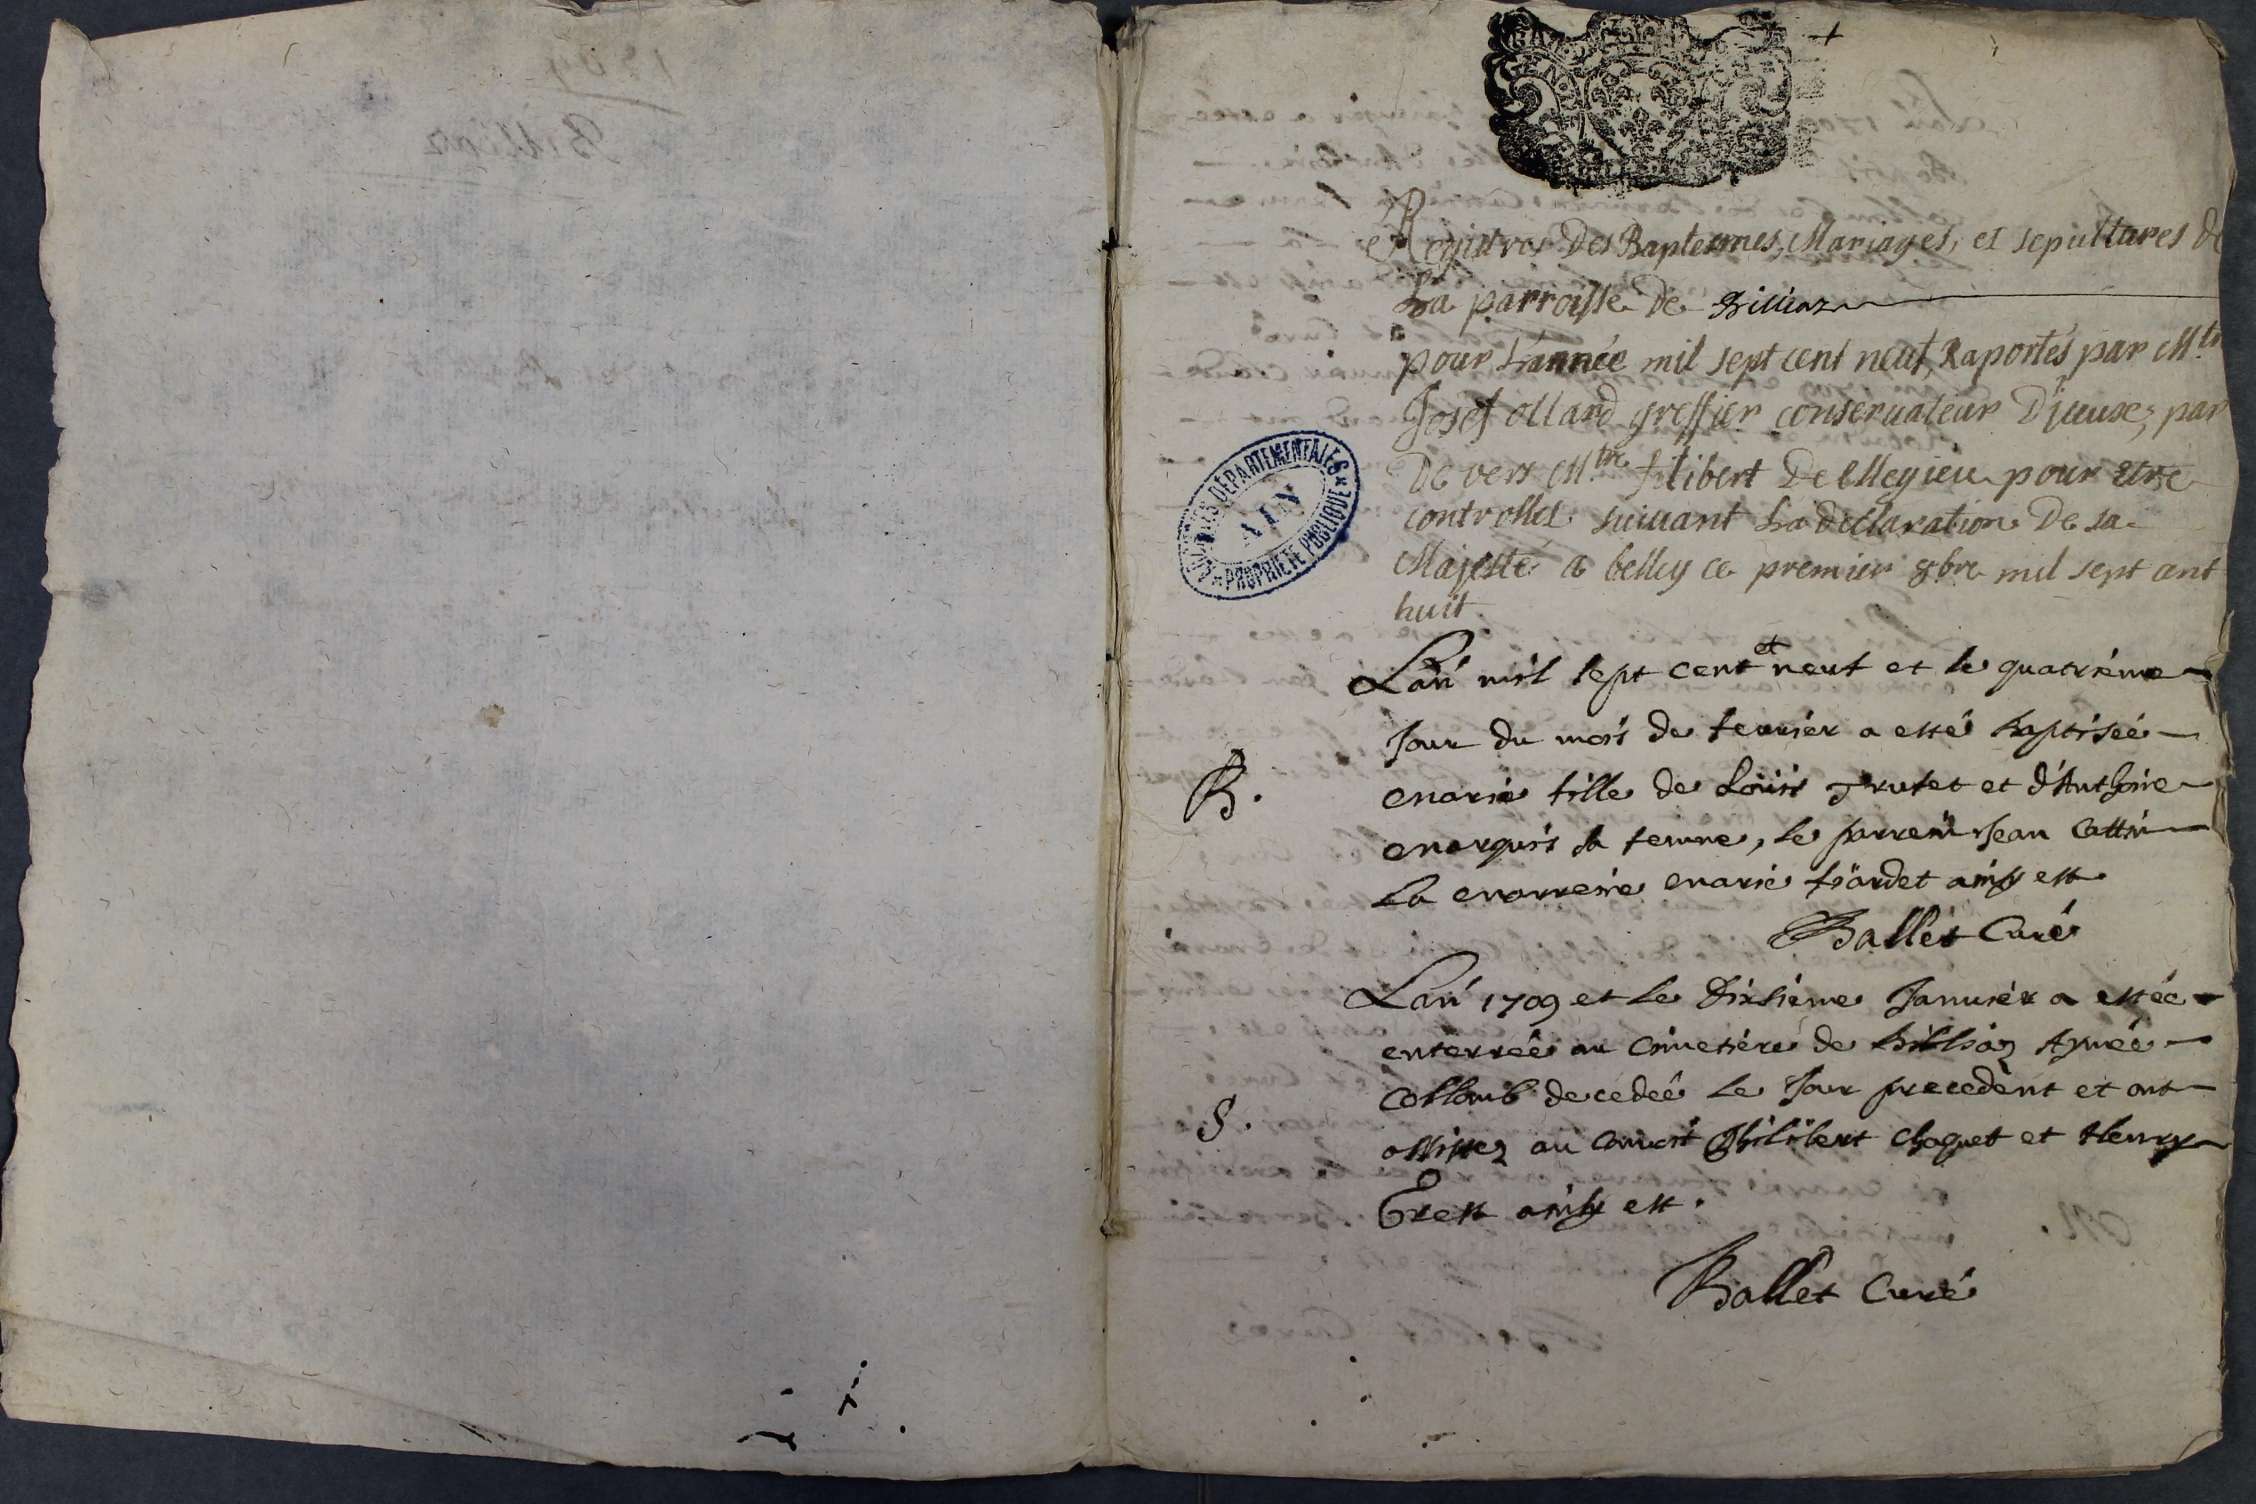 Registres Des Baptesmes, Mariages, et sepultures De
La parroisse De Billiaz
pour L'année mil sept cent neuf, Raportés par Mtre
Josef ollard greffier conservateur D'iceux, par
De vers Mtre filibert De Megieu pour etre
controlles suivant La declaration De sa
Majesté a belley ce premier 8bre mil sept cent
huit
ARCHIVES DÉPARTEMENTALES
AIN
PROPRIÉTÉ PUBLIQUE
Lan mil sept cent et neuf et le quatrieme
Jour du mois de feurier a esté baptisée
B.
marie fille de Louis Trufet et d'Anthoine
marquis sa femme, le parrein Jean Cattin
la marreine marie fiardet ainsy est
Ballet Curé
Lan 1709 et le Dixsieme Januier a estée
enterrée au Cimetiere de billiaz Aymée
Collomb decedée le Jour precedent et ont
S.
assistez au Conuoit Philibert Chaquet et Henry
est ainsy est.
Ballet Curé